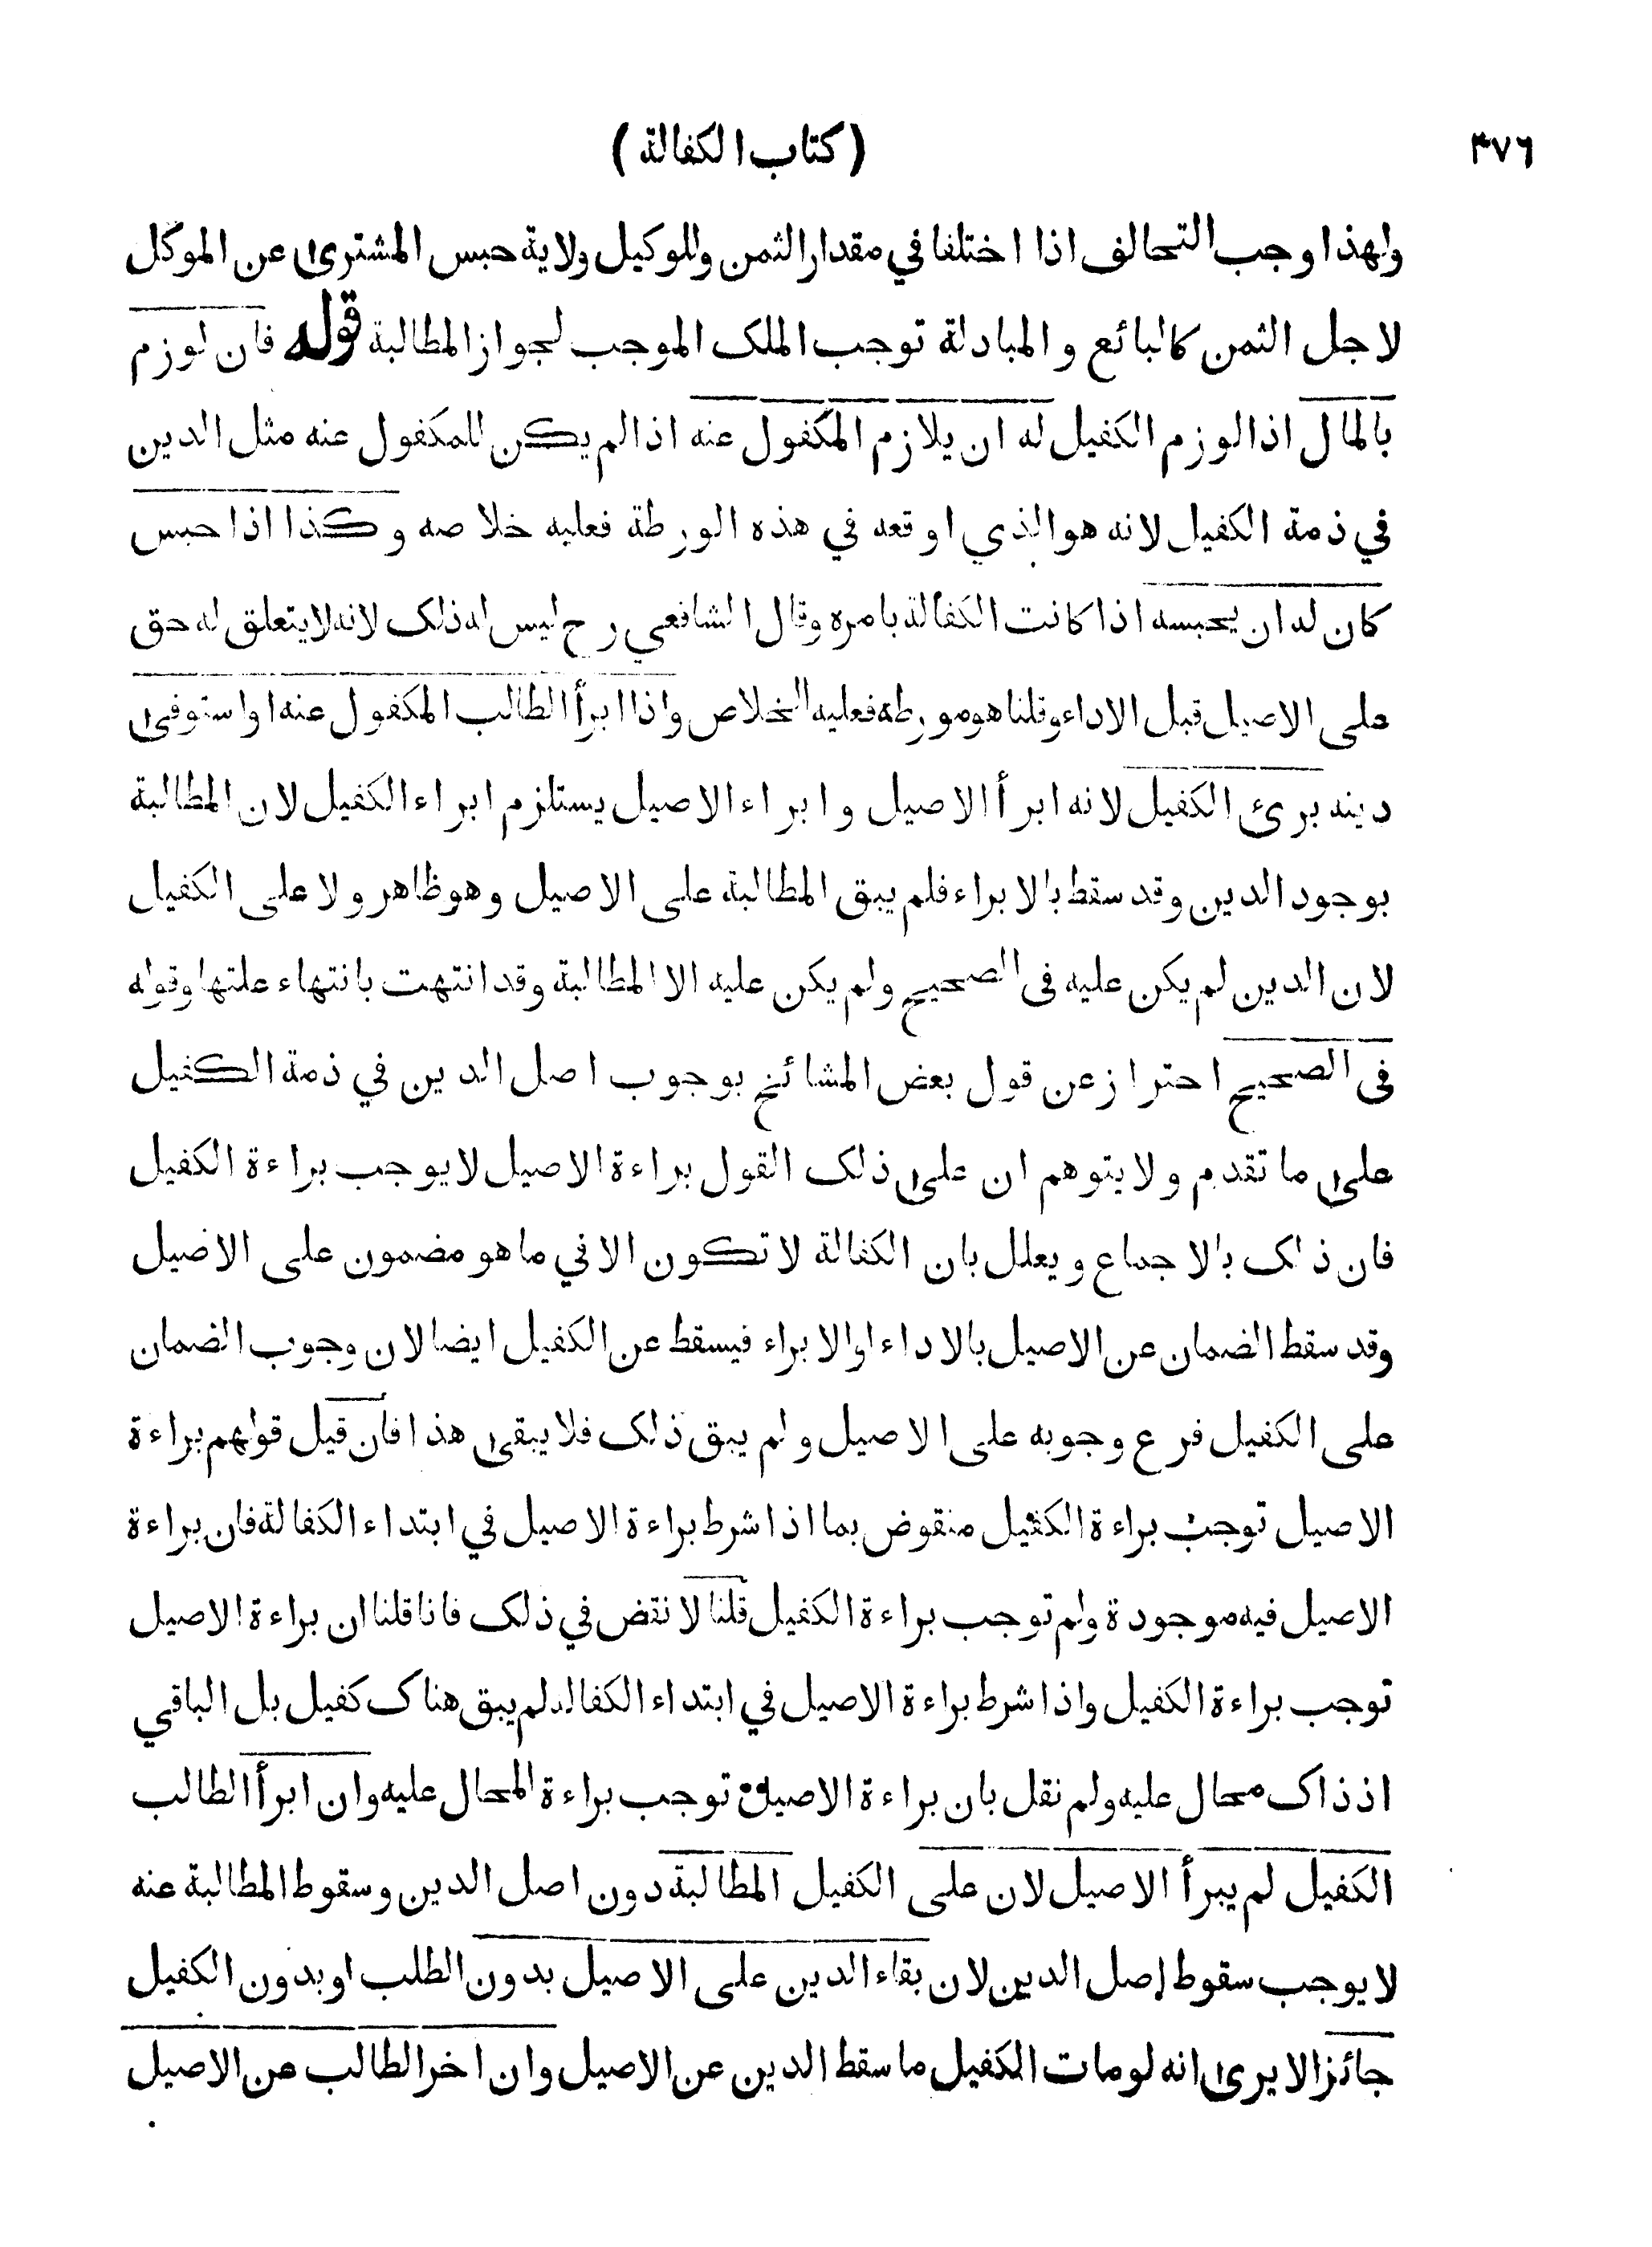 ٣٧٦
(كتاب الكفالة)
ولهذا وجب التحالف اذا اختلفا في مقدار الثمن وللوكيل ولاية حبس المشترى عن الموكل
لاجل الثمن كالبائع والمبادلة توجب الملك الموجب لجواز المطالبة قوله فان لوزم
بالمال اذا لوزم الكفيل له ان يلازم المكفول عنه اذا لم يكن للمكفول عنه مثل الدين
في ذمة الكفيل لانه هو الذي اوقعه في هذه الورطة فعليه خلاصه وكذا اذا حبس
كان له ان يحبسه اذا كانت الكفالة بامره وقال الشافعي رح ليس له ذلك لانه لا يتعلق له حق
على الاصيل قبل الاداء وقلنا هو مورطه فعليه الخلاص واذا ابرأ الطالب المكفول عنه او استوفى
دينه برئ الكفيل لانه ابرأ الاصيل وابراء الاصيل يستلزم ابراء الكفيل لان المطالبة
بوجود الدين وقد سقط بالابراء فلم يبق المطالبة على الاصيل وهو ظاهر ولا على الكفيل
لان الدين لم يكن عليه فى الصحيح ولم يكن عليه الا المطالبة وقد انتهت بانتهاء علتها وقوله
فى الصحيح احتراز عن قول بعض المشائخ بوجوب اصل الدين في ذمة الكفيل
على ما تقدم ولا يتوهم ان على ذلك القول براءة الاصيل لا يوجب براءة الكفيل
فان ذلك بالاجماع ويعلل بان الكفالة لا تكون الا في ما هو مضمون على الاصيل
وقد سقط الضمان عن الاصيل بالاداء او الابراء فيسقط عن الكفيل ايضا لان وجوب الضمان
على الكفيل فرع وجوبه على الاصيل ولم يبق ذلك فلا يبقى هذا فان قيل قولهم براءة
الاصيل توجب براءة الكفيل منقوض بما اذا شرط براءة الاصيل في ابتداء الكفالة فان براءة
الاصيل فيه موجودة ولم توجب براءة الكفيل قلنا لا نقض في ذلك فانا قلنا ان براءة الاصيل
توجب براءة الكفيل واذا شرط براءة الاصيل في ابتداء الكفالة لم يبق هناك كفيل بل الباقي
اذ ذاك محال عليه ولم نقل بان براءة الاصيل توجب براءة المحال عليه وان ابرأ الطالب
الكفيل لم يبرأ الاصيل لان على الكفيل المطالبة دون اصل الدين وسقوط المطالبة عنه
لا يوجب سقوط اصل الدين لان بقاء الدين على الاصيل بدون الطلب او بدون الكفيل
جائز الا يرى انه لو مات الكفيل ما سقط الدين عن الاصيل وان اخر الطالب عن الاصيل